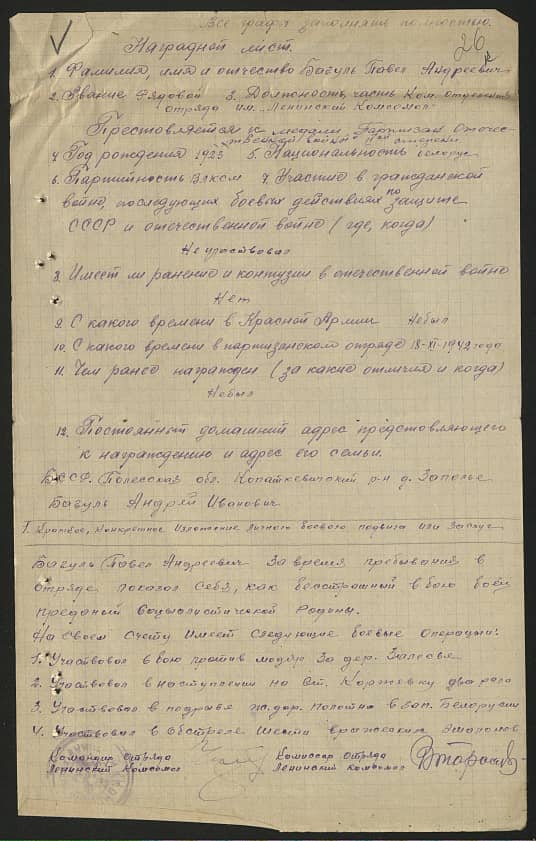 Все графы заполнять полностью.
26
Наградной лист.
1. Фамилия, имя и отчество Багуль Павел Андреевич
2. Звание Рядовой 3. Должность, часть Ком. отделения
отряда им. Ленинский Комсомол
Престовляется к медали Партизан Отечес-
твенной войны II ой степени
4. Год рождения 1923 5. Национальность Белорус
6. Партийность ВЛКСМ 7. Участие в гражданской
войно, последующих боевых действиях по защите
СССР и отечественной войно (где, когда)
Не участвовал
8. Имеет ли ранение и контузии в отечественной войно
Нет
9. С какого времени в Красной Армии Небыл
10. С какого времени в партизанском отряде 18-XI-1942 года
11. Чем ранее награжден (за какие отличия и когда)
Небыл
12. Постоянный домашний адрес представляющего
к награждению и адрес его семьи.
БССР. Полесская обл. Копаткевичский р-н д. Заполье
Багуль Андрей Иванович
I. Краткое, конкретное изложение личного боевого подвига или заслуг
Багуль Павел Андреевич за время пребывания в
отряде показал себя, как бесстрашный в бою боец
преданый социалистической Родины.
На своем счету имеет следующие боевые операции:
1. Участвовал в бою против мадяр за дер. Залесье
2. Участвовал в наступлении на ст. Коржевку два раза
3. Участвовал в подрыве жд. дор. полотна в зап. Белорусии
4. Участвовал в обстреле шести вражеских эшалонов
Командир Отряда Комиссар Отряда
Ленинский Комсомол Ленинский комсомол